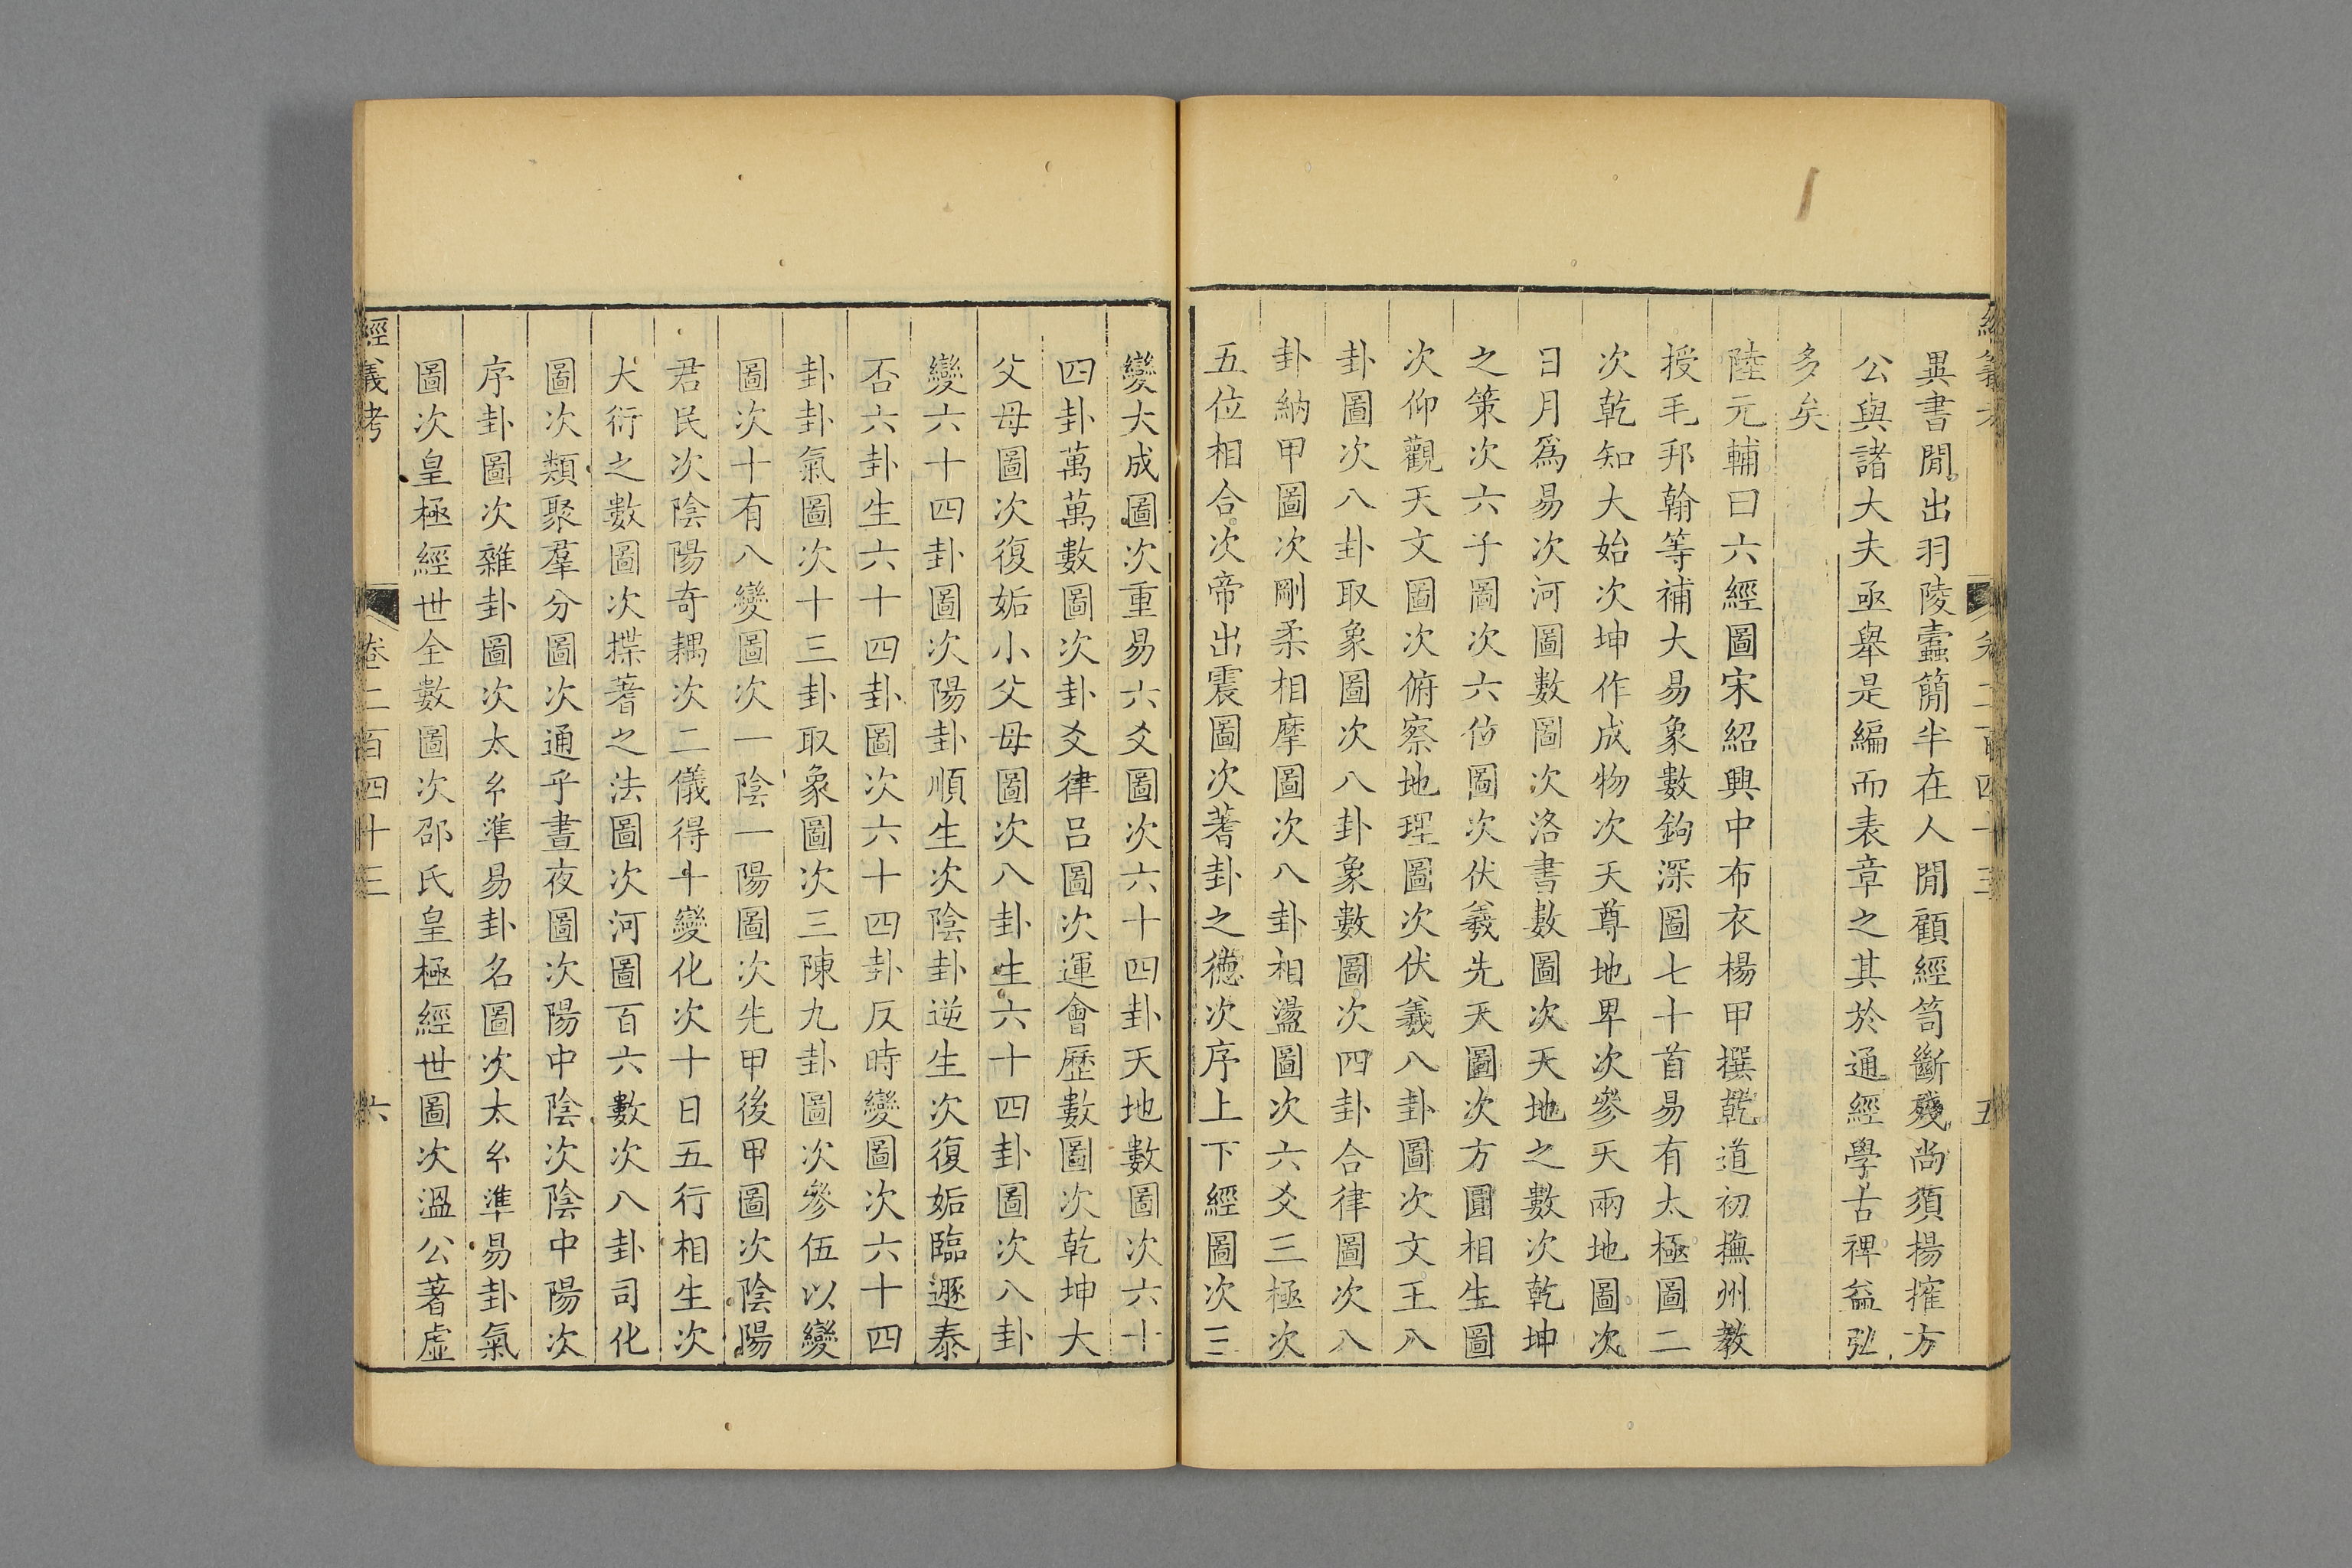 異書閒出羽陵蠹簡半在人閒顧經笥斷殘尚須揚搉方
公與諸大夫亟舉是編而表章之其於通經學古裨益弘
多矣
陸元輔曰六經圖宋紹興中布衣楊甲撰乾道初撫州教
授毛邦翰等補大易象數鉤深圖七十首易有太極圖二
次乾知大始次坤作成物次天尊地卑次參天兩地圖次
日月爲易次河圖數圖次洛書數圖次天地之數次乾坤
之策次六子圖次六位圖次伏羲先天圖次方圓相生圖
次仰觀天文圖次俯察地理圖次伏羲八卦圖次文王八
卦圖次八卦取象圖次八卦象數圖次四卦合律圖次八
卦納甲圖次剛柔相摩圖次八卦相盪圖次六爻三極次
五位相合次帝出震圖次蓍卦之德次序上下經圖次三
變大成圖次重易六爻圖次六十四卦天地數圖次六十
四卦萬萬數圖次卦爻律呂圖次運會歷數圖次乾坤大
父母圖次復姤小父母圖次八卦生六十四卦圖次八卦
變六十四卦圖次陽卦順生次陰卦逆生次復姤臨遯泰
否六卦生六十四卦圖次六十四卦反時變圖次六十四
卦卦氣圖次十三卦取象圖次三陳九卦圖次參伍以變
圖次十有八變圖次一陰一陽圖次先甲後甲圖次陰陽
君民次陰陽奇耦次二儀得十變化次十日五行相生次
大衍之數圖次揲蓍之法圖次河圖百六數次八卦司化
圖次類聚羣分圖次通乎晝夜圖次陽中陰次陰中陽次
序卦圖次雜卦圖次太𢆯準易卦名圖次太𢆯準易卦氣
圖次皇極經世全數圖次邵氏皇極經世圖次溫公著虛
經義考 卷二百四十三 六